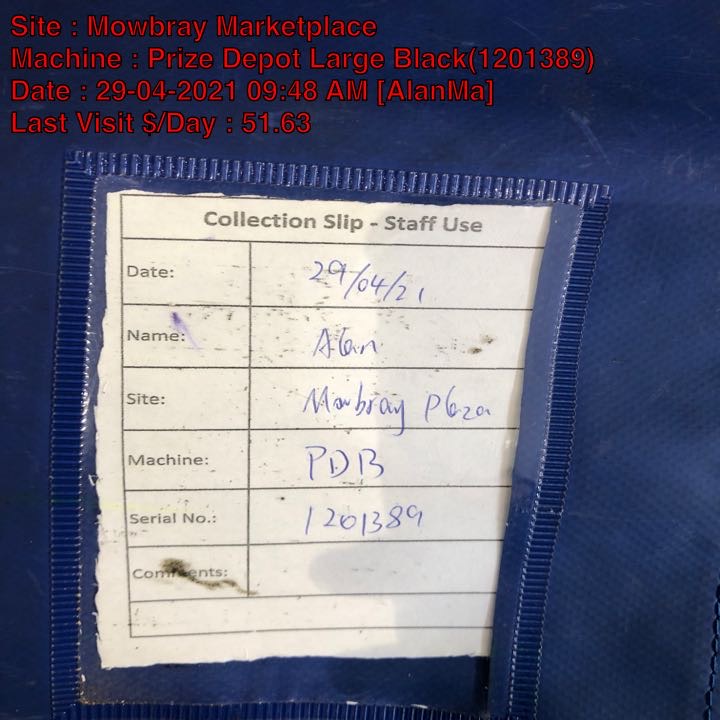 Site : Mowbray Marketplace
Machine : Prize Depot Large Black(1201389)
Date : 29-04-2021 09:48 AM [AlanMa]
Last Visit $/Day : 51.63
Collection Slip - Staff Use
Date: 29/04/21
Name: Alan
Site: Mowbray Plaza
Machine: PDB
Serial No.: 1201389
Comments: